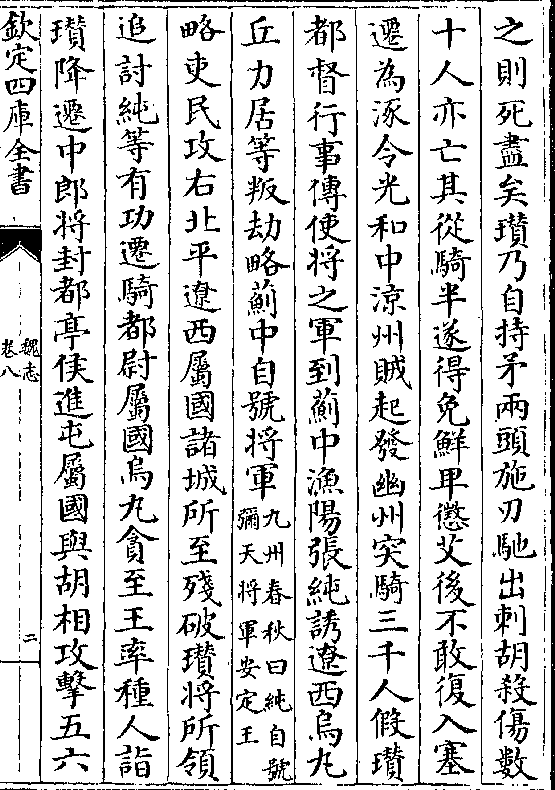 之則死盡矣瓚乃自持矛兩頭施刃馳出刺胡殺傷數
十人亦亡其從騎半遂得免鮮卑懲艾後不敢復入塞
遷為涿令光和中涼州賊起發幽州突騎三千人假瓚
都督行事傳使將之軍到薊中漁陽張純誘遼西烏丸
丘力居等叛劫略薊中自號將軍九州春秋曰純自號彌天將軍安定王
略吏民攻右北平遼西屬國諸城所至殘破瓚將所領
追討純等有功遷騎都尉屬國烏丸貪至王率種人詣
瓚降遷中郎將封都亭侯進屯屬國與胡相攻擊五六
欽定四庫全書
魏志
卷八
二